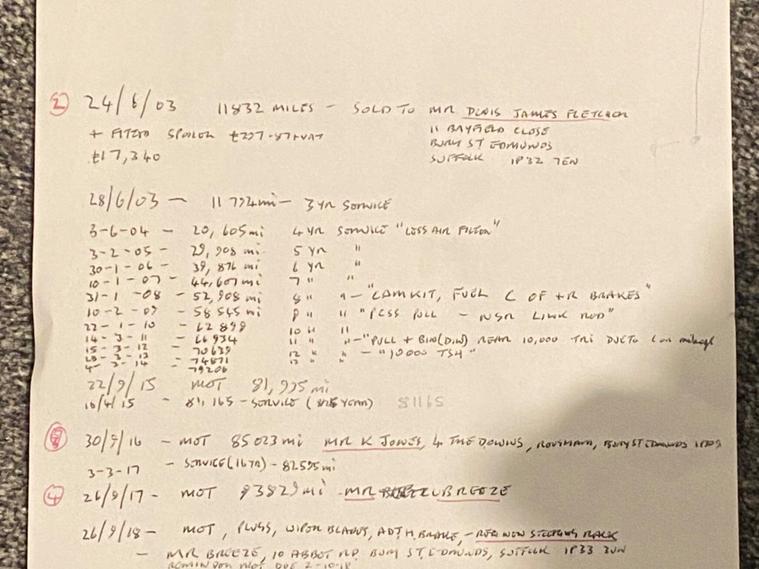 2 24/6/03 11832 MILES - SOLD TO MR DENIS JAMES FLETCHER
+ FITTED SPOILER + VAT 11 BAYFIELD CLOSE
£17,340 BURY ST EDMUNDS
SUFFOLK IP32 7EN
28/6/03 - 11 794mi - 3 YR SERVICE
3-6-04 - 20,605mi 4 YR SERVICE "LESS AIR FILTER"
3-2-05 - 29,908 mi 5 YR "
30-1-06 - 39,876 mi 6 YR "
10-1-07 - 44,607 mi 7 " "
31-1-08 - 52,908 mi 8 " " - "CAMKIT, FUEL C OF +R BRAKES"
10-2-09 - 58 545 mi 9 " " - NSR LINK ROD"
22-1-10 - 62 899 10 " "
14-3-11 - 66 934 11 " " - "PULL + REAR 10,000 DUE TO low mileage
15-3-12 - 70629 12 " " - "10000
20-3-13 - 74871 13 " "
4-3-14 - 79206
22/9/15 MOT 81,995 mi
16/4/15 - 81,165 - SERVICE ( YEAR) 81165
3 30/9/16 - MOT 85023 mi MR K JONES, 4 THE DOWNS, , BURY ST EDMUNDS
3-3-17 - SERVICE (16YR) - 82595mi
4 26/9/17 - MOT 93829 mi - MR BREEZE
26/9/18 - MOT, PLUGS, WIPER BLADES, ADJ H, BRAKE, - STEERING RACK
- MR BREEZE, 10 ABBOT RD, BURY ST, EDMUNDS, SUFFOLK IP33 3UN
MOT DUE 2-10-18